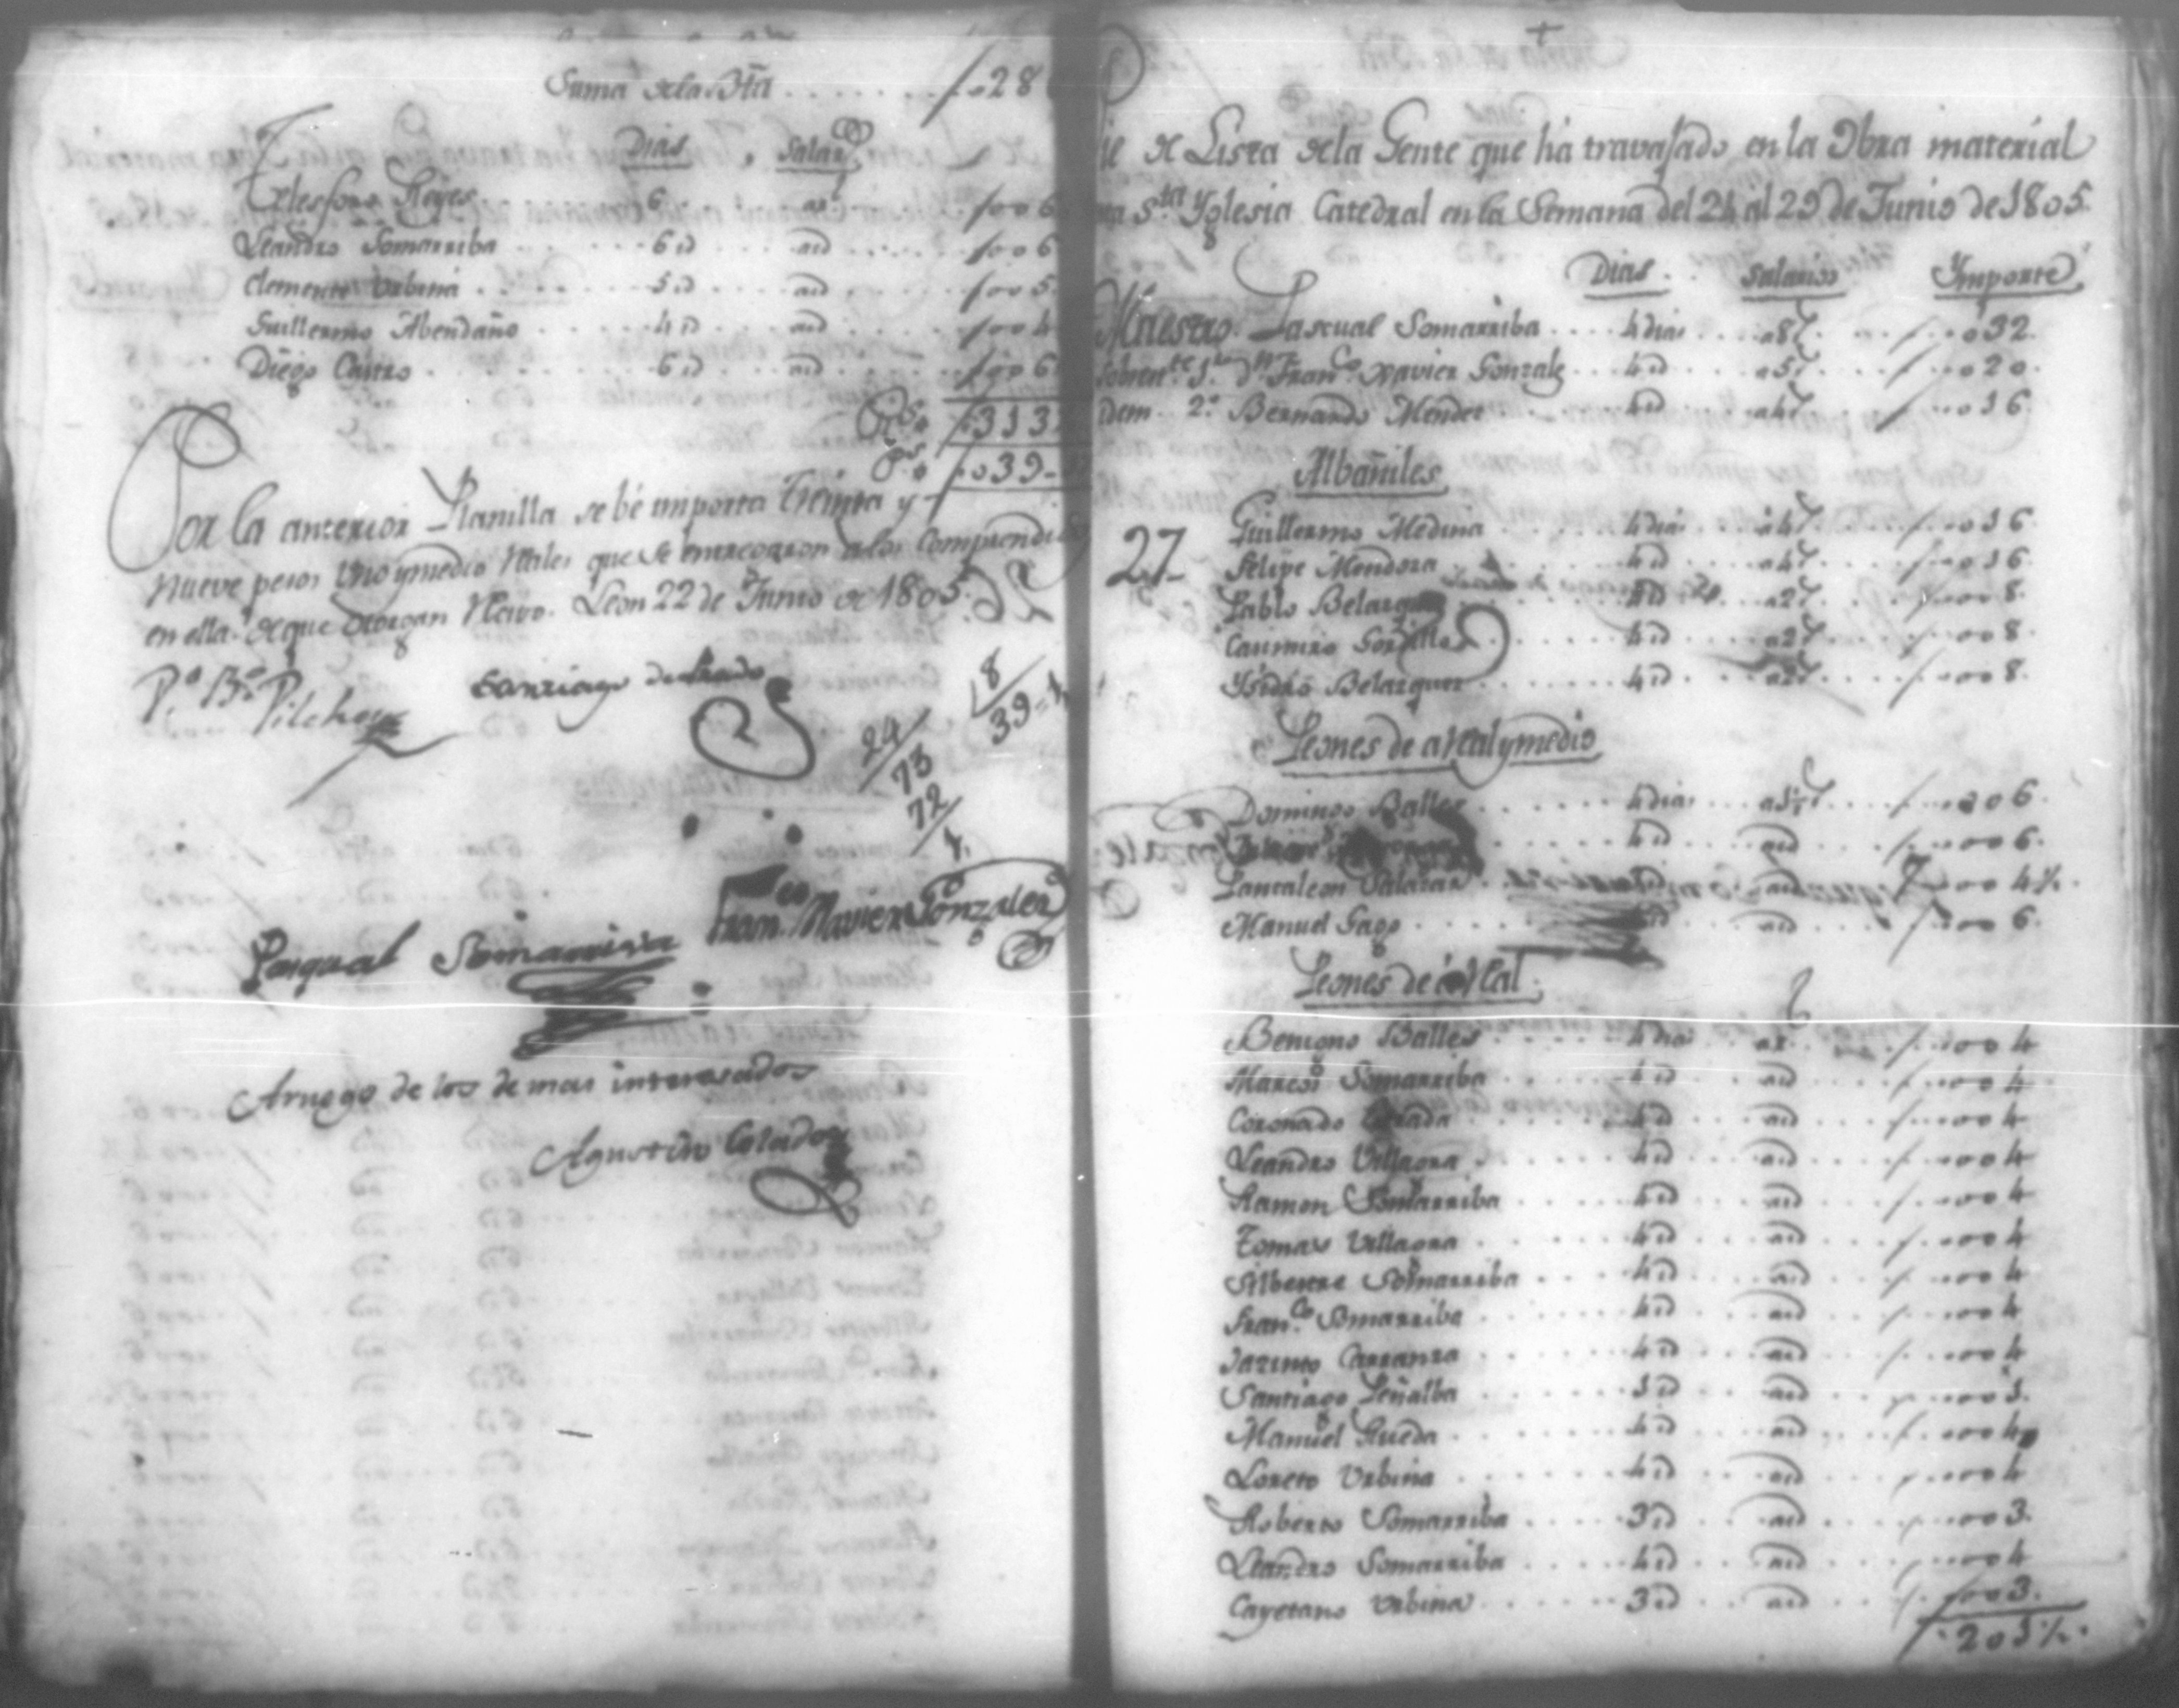 Suma de la Bta . . . . . . . 28
Dias . Salar.
Telesforo Reyes . . 6 . . . . ar . . . . 006
Leandro Somarriba . . . . . . 6 id . . . . id . . . . . 006
Clemente Urbina . . . . . . 5 id . . . . id . . . . . 005
Guillermo Abendaño . . . . . 4 id . . . . id . . . . . 004
Diego Castro . . . . . . . . 6 id . . . . id . . . . . 006
Rs. 313
Ps. 039-
Por la anterior Planilla se bé importa treinta y
nueve pesos uno y medio rriales que se entregaron a los Comprendidos
en ella. de que otorgan Recivo. Leon 22 de Junio de 1805.
P.o B.e Pilchoy
Santiago de
8
39=1
24
73
72
1
Fran.co Xavier Gonzalez
Pasqual Somarriva
Arruego de los de mas interesados
Agustin Colador
de Lista de la Gente que ha travajado en la Obra material
S.ta Yglesia Catedral en la Semana del 24 al 29 de Junio de 1805.
Dias . Salarios Ymporte
Maestro. Pascual Somarriba . . . . 4 dias . . . a 8 r . . . 032.
Sobrente. 1.o Dn Fran.co Xavier Gonzalez . . . 4 id . . . a 5 r . . . 020.
Idem. 2.o Bernardo Mendez . . . 4 id . . . a 4 r . . . 016.
Albañiles
27
Guillermo Medina . . . . 4 dias . . . a 4 r . . . 016.
Felipe Mendoza . . . . 4 id . . . a 4 r . . . 016.
Pablo Belazquez . . . . 4 id . . . a 2 r . . . 008.
Casimiro Gordillo . . . . 4 id . . . a 2 r . . . 008.
Ysidro Belazquez . . . . 4 id . . . a 2 r . . . 008.
Peones de a rreal y medio
Domingo Balles . . . . 4 dias . . . a 1½ r . . . 006.
4 id . . . id . . . 006.
Pantaleon Salazar . . . id . . . 004½.
Manuel Gago . . . . 4 id . . . id . . . 006.
Peones de á rreal
Benigno Balles . . . . 4 dias . . . a 1 . . . 004
Marcos Somarriba . . . . 4 id . . . id . . . 004
Coronado Estrada . . . . 4 id . . . id . . . 004
Leandro Villagra . . . . 4 id . . . id . . . 004
Ramon Somarriba . . . . 4 id . . . id . . . 004
Tomas Villagra . . . . 4 id . . . id . . . 004
Silbestre Somarriba . . . . 4 id . . . id . . . 004
Fran.co Somarriba . . . . 4 id . . . id . . . 004
Jacinto Carranza . . . . 4 id . . . id . . . 004
Santiago Peñalba . . . . 1 id . . . id . . . 001.
Manuel Rueda . . . . 4 id . . . id . . . 004
Loreto Urbina . . . . 4 id . . . id . . . 004
Roberto Somarriba . . . . 3 id . . . id . . . 003.
Leandro Somarriba . . . . 4 id . . . id . . . 004
Cayetano Urbina . . . . 3 id . . . id . . . 003.
201½.